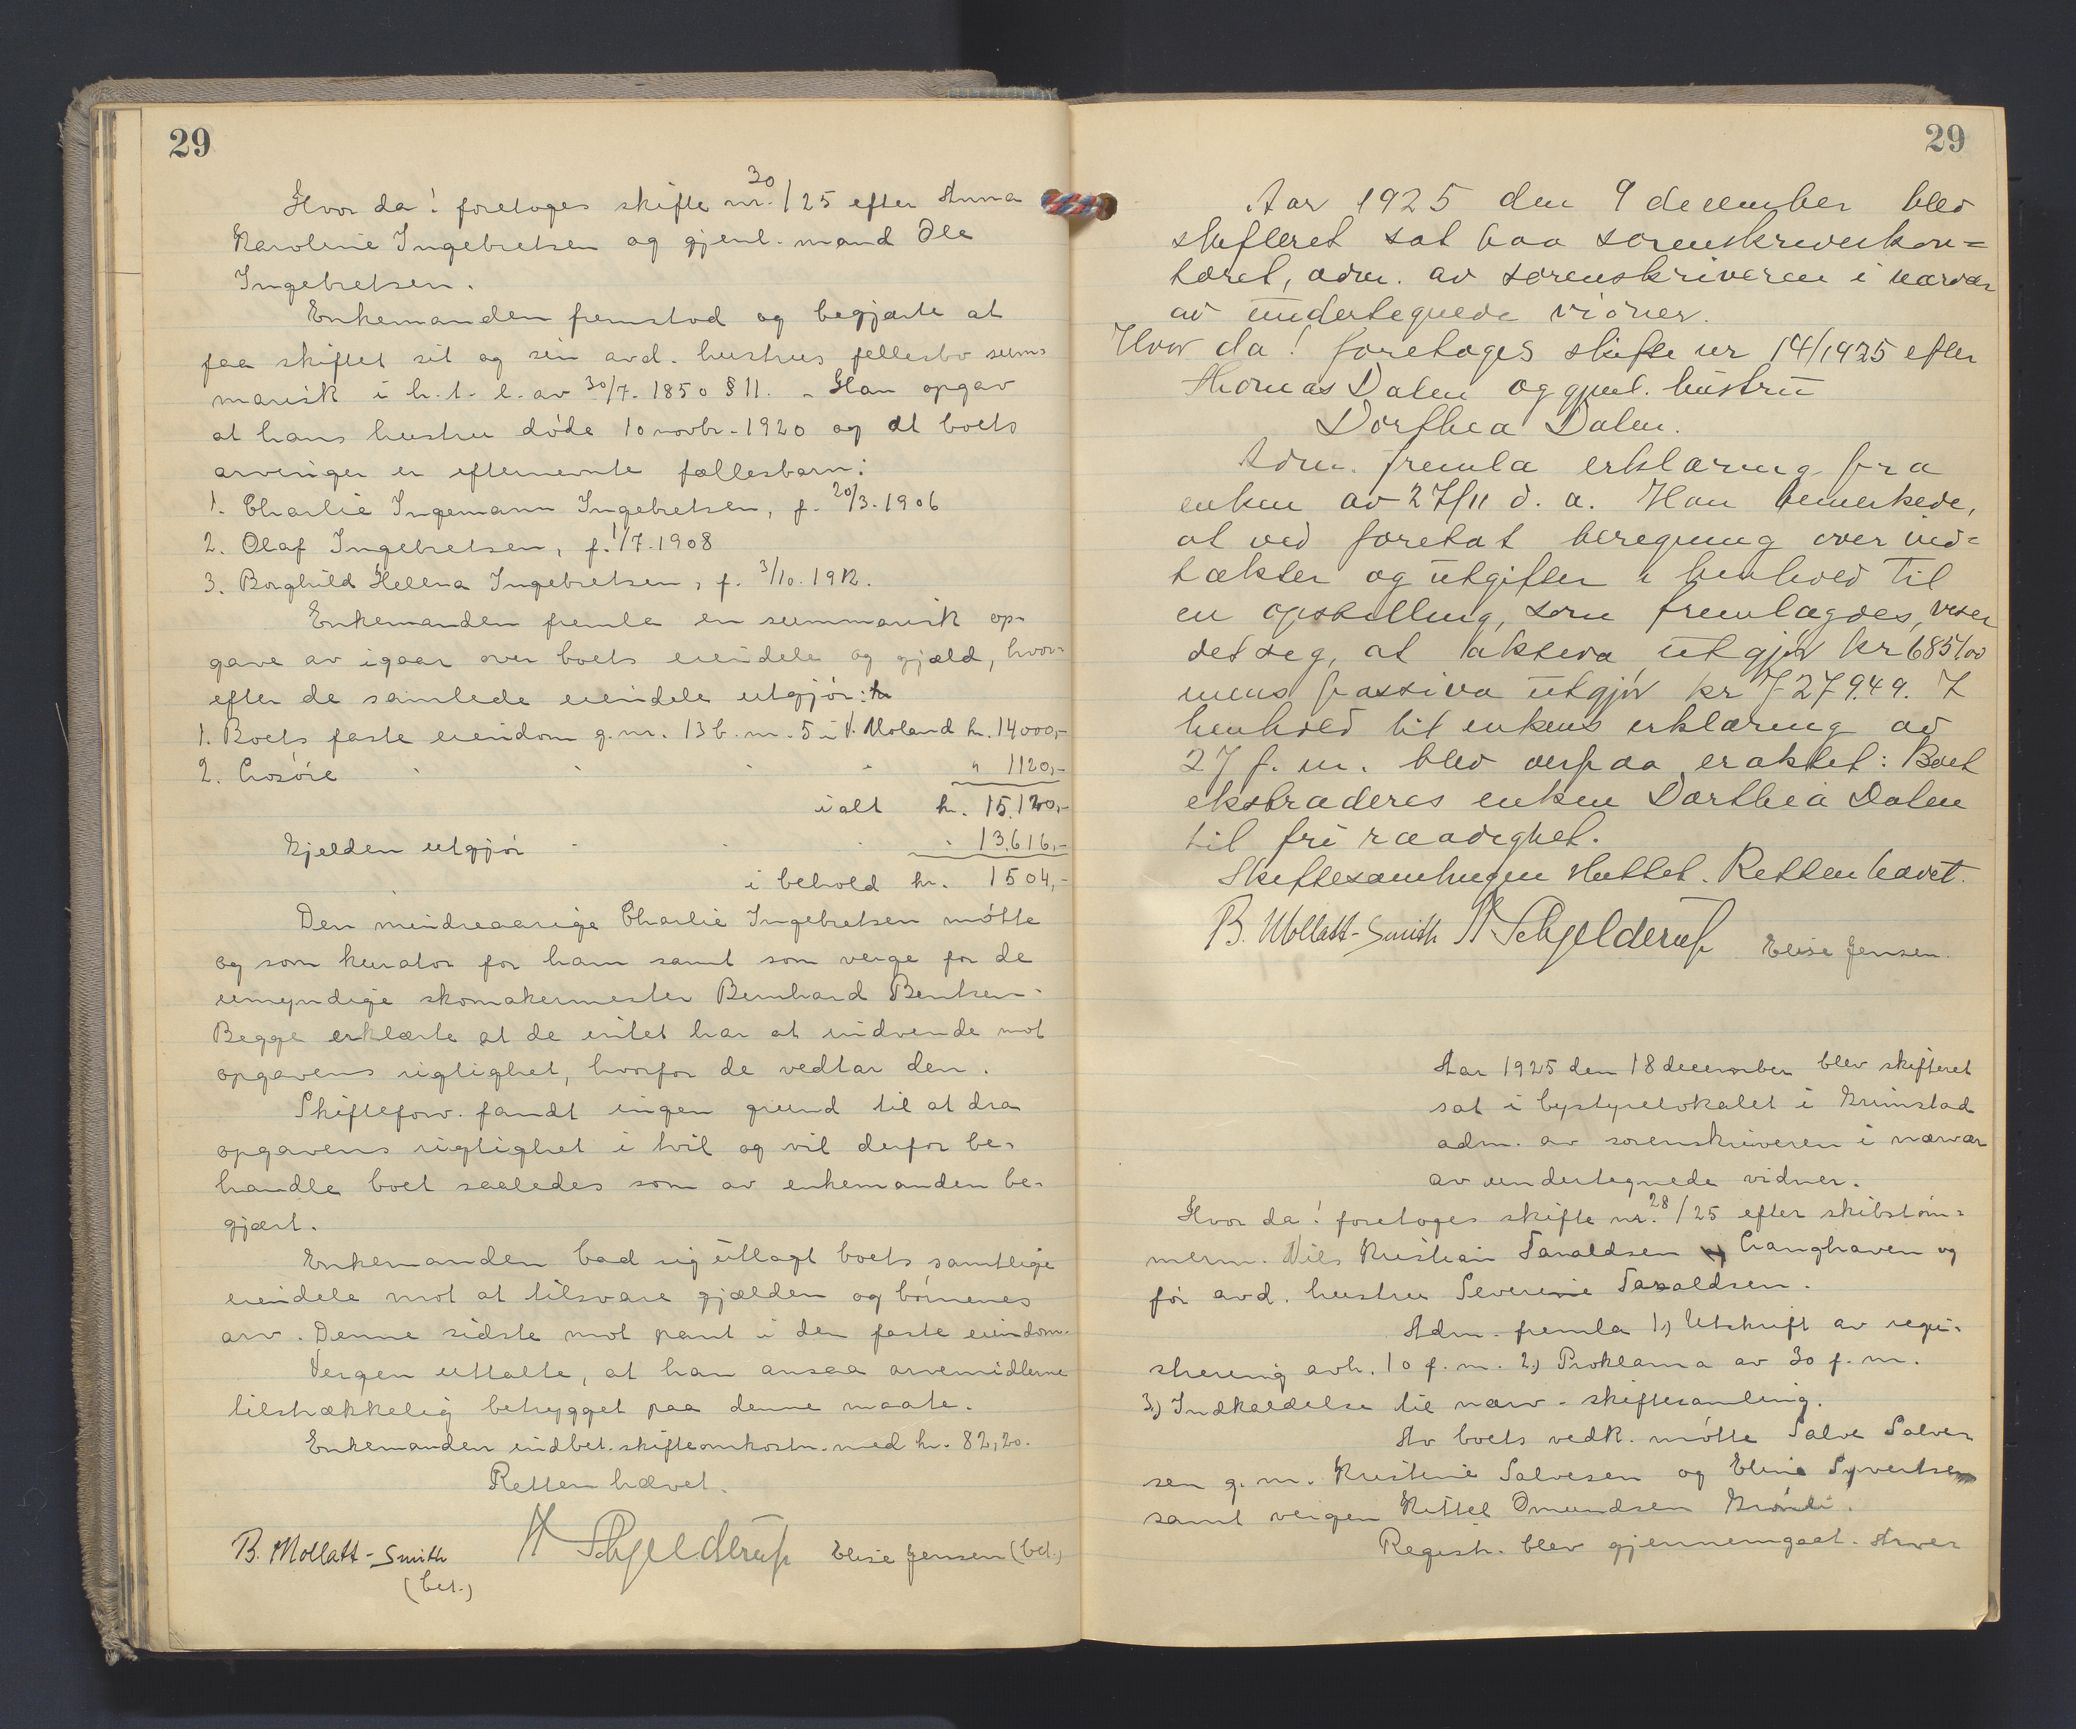 29
Hvor da! foretoges skifte nr. 30/25 efter Anna
Karoline Ingebretsen og gjenl. mand Ole
Ingebretsen.
Enkemanden fremstod og begjærte at
faa skiftet sit og sin avd. hustrus fellesbo sum-
marisk i h. t. l. av 30/7. 1850 § 11. - Han opgav
at hans hustru døde 10 novbr. 1920 og at boets
arvinger er efternevnte fællesbarn:
1. Charlie Ingemann Ingebretsen, f. 20/3. 1906
2. Olaf Ingebretsen, f. 1/7. 1908
3. Borghild Helena Ingebretsen, f. 3/10. 1912.
Enkemanden fremla en summarisk op-
gave av igaar over boets eiendele og gjæld, hvor-
efter de samlede eiendele utgjør:
1. Boets faste eiendom g. nr. 13 b. nr. 5 i V. Moland kr. 14000,-
2. Løsøre " 1120,-
ialt kr. 15.120,-
Gjelden utgjør - 13.616,-
i behold kr. 1504,-
Den mindreaarige Charlie Ingebretsen møtte
og som kurator for ham samt som verge for de
umyndige skomakermester Bernhard Bentsen.
Begge erklærte at de intet har at indvende mot
opgavens rigtighet, hvorfor de vedtar den.
Skifteforv. fandt ingen grund til at dra
opgavens rigtighet i tvil og vil derfor be-
handle boet saaledes som av enkemanden be-
gjært.
Enkemanden bad sig utlagt boets samtlige
eiendele mot at tilsvare gjælden og børnenes
arv. Denne sidste mot pant i den faste eiendom.
Vergen uttalte, at han ansaa arvemidlerne
tilstrækkelig betrygget paa denne maate.
Enkemanden indbet. skifteomkostn. med kr. 82,20.
Retten hævet.
B. Mollatt-Smith H Schjelderup Elise Jensen (bet.)
(bet.)
29
Aar 1925 den 9 december blev
skifteret sat paa sorenskriverkon-
toret, adm. av sorenskriveren i nærvær
av undertegnede vidner.
Hvor da! foretoges skifte nr 14/1925 efter
Thomas Dalen og gjenl. hustru
Dorthea Dalen.
Adm. fremla erklæring fra
enken av 27/11 d. a. Han bemerkede,
at ved foretat beregning over ind-
tækter og utgifter i henhold til
en opstilling, som fremlægdes, viser
det seg, at aktiva utgjør kr 6851,00
mens passiva utgjør kr 7279.49. I
henhold til enkens erklæring av
27 f. m. blev derpaa eraktet: Boet
ekstraderes enken Dorthea Dalen
til fri raadighet.
Skiftesamlingen sluttet. Retten hævet.
B. Mollatt-Smith H Schjelderup Elise Jensen.
Aar 1925 den 18 december blev skifteret
sat i bystyrelokalet i Grimstad
adm. av sorenskriveren i nærvær
av undertegnede vidner.
Hvor da! foretoges skifte nr. 28/25 efter skibstøm-
merm. Nils Kristian Taraldsen Langhaven og
før avd. hustru Severine Taraldsen.
Adm. fremla 1) Utskrift av regi-
strering avh. 10 f. m. 2) Proklama av 30 f. m.
3) Indkaldelse til nærv. skiftesamling.
Av boets vedk. møtte Salve Salve-
sen g. m. Kristine Salvesen og Eline Syvertsen
samt vergen Kittel Omundsen
Registr. blev gjennemgaat. Arve-